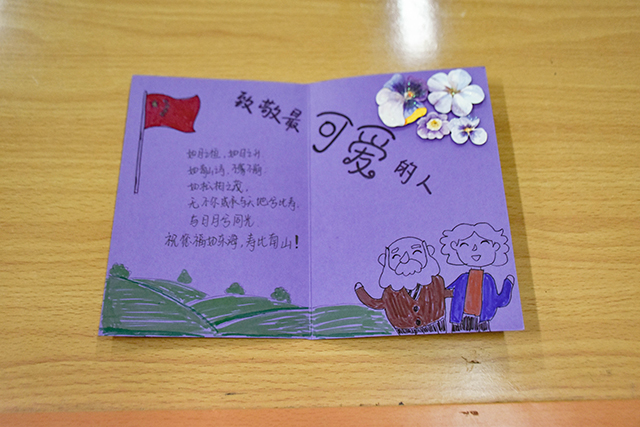 致敬最可爱的人
如月之恒，如日之升
如南山之寿，不骞不崩
如松柏之茂，
无不尔或承与天地兮比寿，
与日月兮同光
祝您福如东海，寿比南山！